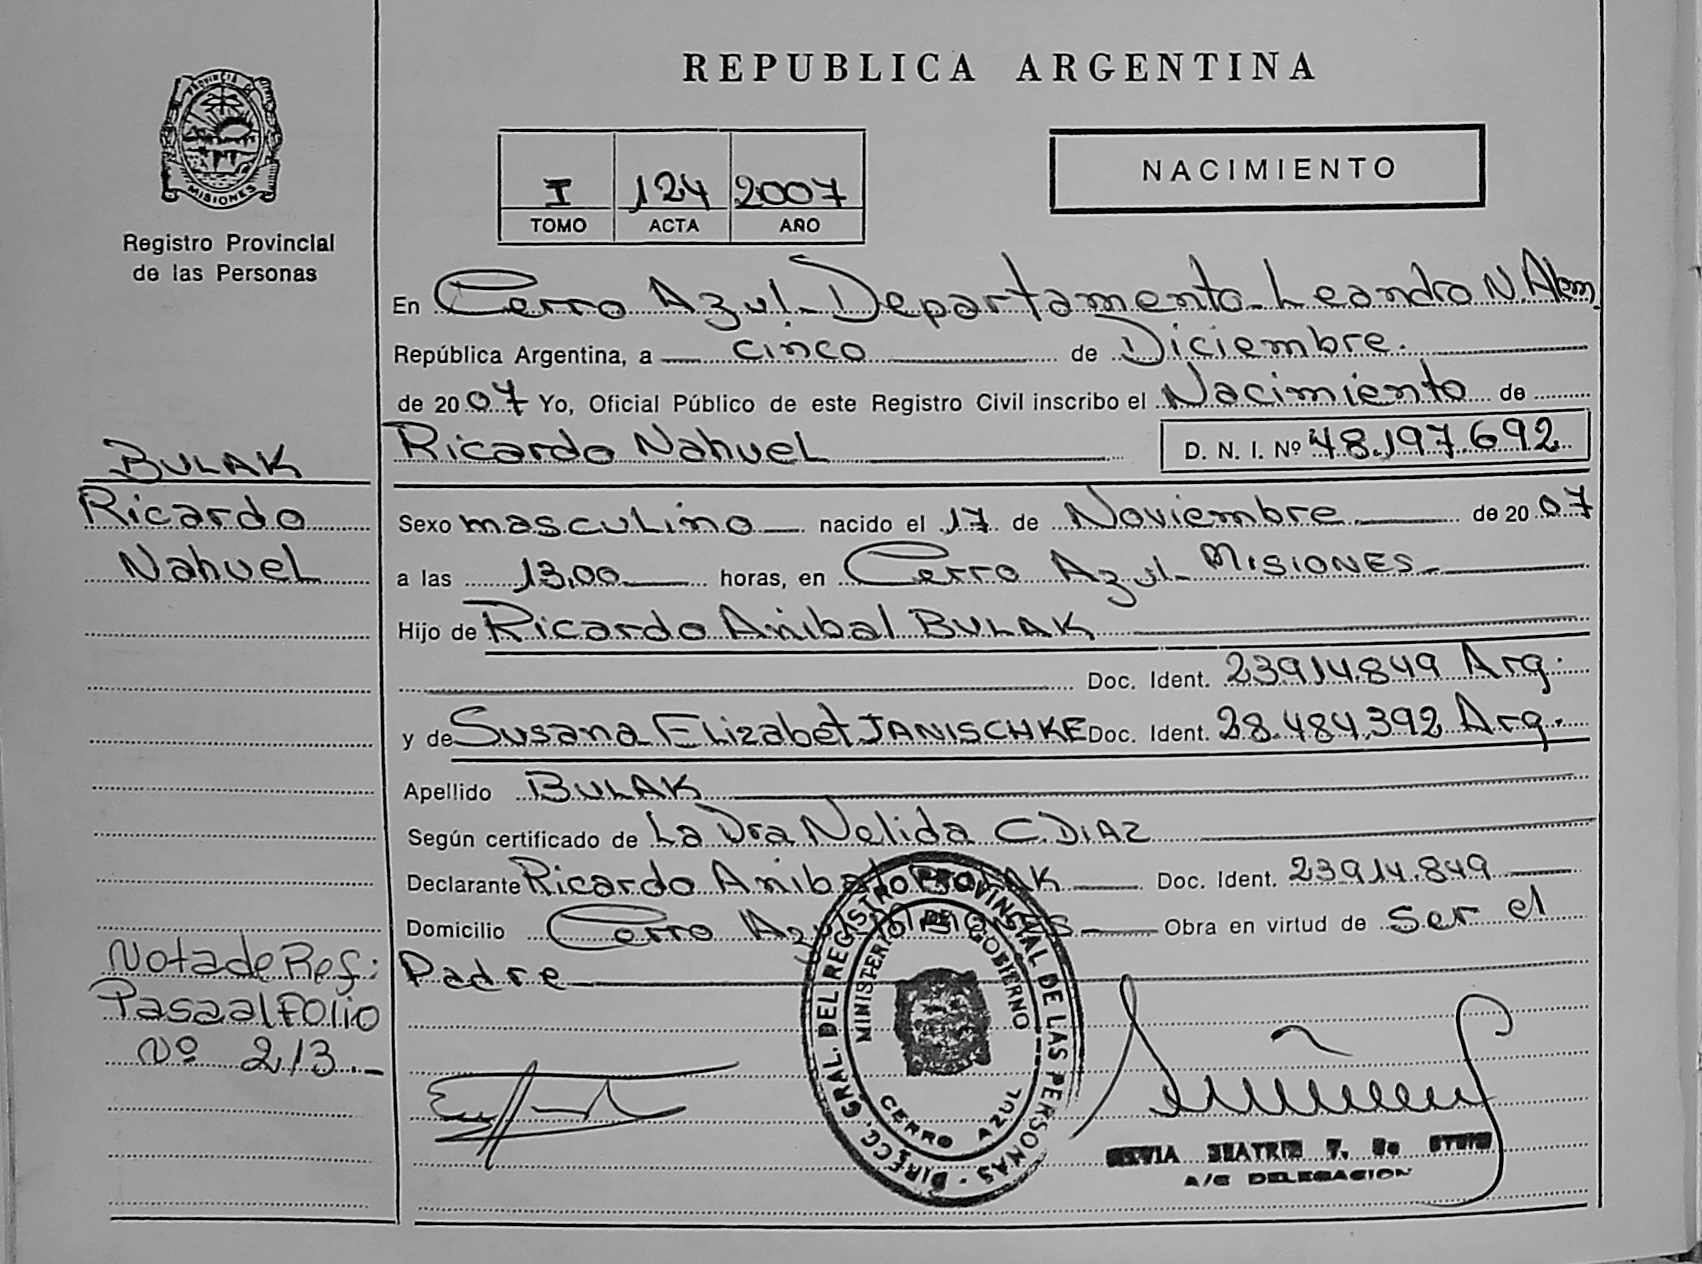 REPUBLICA ARGENTINA
PROVINCIA DE
MISIONES
Registro Provincial
de las Personas
I 124 2007
TOMO ACTA AÑO
NACIMIENTO
En Cerro Azul - Departamento Leandro N. Alem.
República Argentina, a cinco de Diciembre.
de 2007 Yo, Oficial Público de este Registro Civil inscribo el Nacimiento de
Ricardo Nahuel D. N. I. Nº 48.197.692
BULAK
Ricardo
Nahuel
Sexo masculino nacido el 17 de Noviembre de 2007
a las 13,00 horas, en Cerro Azul - MISIONES -
Hijo de Ricardo Anibal BULAK
Doc. Ident. 23914.849 Arg.
y de Susana Elizabet JANISCHKE Doc. Ident. 28.484.392 Arg.
Apellido BULAK
Según certificado de La Dra Nelida C. DIAZ
Declarante Ricardo Anibal BULAK Doc. Ident. 23914.849
Domicilio Cerro Azul MISIONES Obra en virtud de ser el
Padre
Nota de Ref:
Pasa al FOLIO
Nº 213.-
DIRECC. GRAL. DEL REGISTRO PROVINCIAL DE LAS PERSONAS
MINISTERIO DE GOBIERNO
CERRO AZUL
SILVIA BEATRIZ
A/C DELEGACION